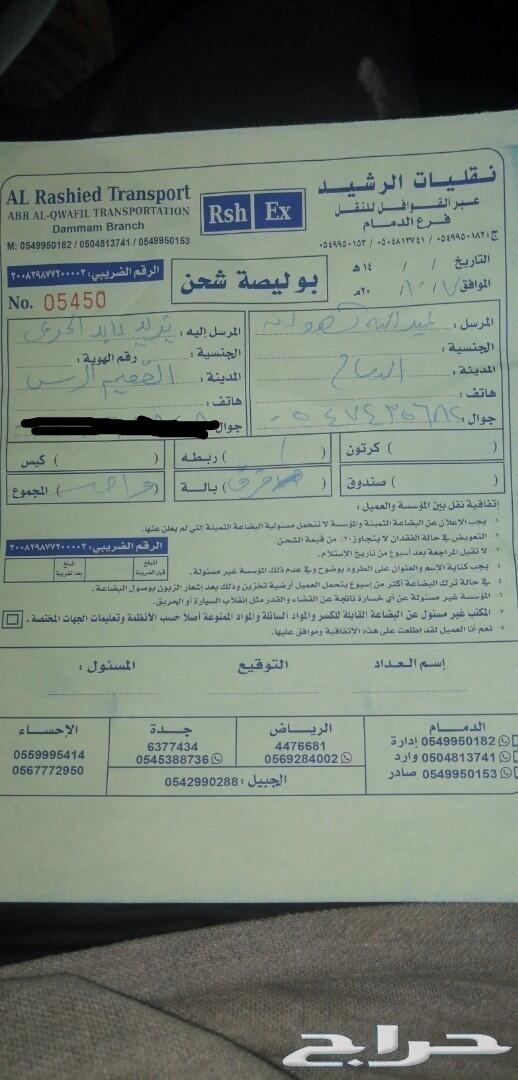 نقليات الرشيد
عبر القوافل للنقل
فرع الدمام
ج: ٠٥٤٩٩٥٠١٨٢ / ٠٥٠٤٨١٣٧٤١ / ٠٥٤٩٩٥٠١٥٣
Rsh Ex
AL Rashied Transport
ABR AL-QWAFIL TRANSPORTATION
Dammam Branch
M: 0549950182 / 0504813741 / 0549950153
التاريخ / / ١٤ هـ
الموافق / / ٢٠ م
بوليصة شحن
الرقم الضريبي: ٣٠٠٨٢٩٨٧٧٢٠٠٠٠٣
No. 05450
المرسل : عبدالله
الجنسية :
المدينة : الدمام
هاتف :
جوال :
المرسل إليه : يزيد عابد الحربي
الجنسية : رقم الهوية :
المدينة : القصيم الرس
هاتف :
جوال
( ) كرتون
( ) صندوق
( ) ربطه
( ) بالة
( ) كيس
( واحد ) المجموع
إتفاقية نقل بين المؤسسة والعميل :
١ يجب الإعلان عن البضاعة الثمينة والمؤسسة لا تتحمل مسئولية البضاعة الثمينة التي لم يعلن عنها.
٢ التعويض في حالة الفقدان لا يتجاوز ٢٠٪ من قيمة الشحن.
٣ لا تقبل المراجعة بعد أسبوع من تاريخ الإستلام.
٤ يجب كتابة الإسم والعنوان على الطرود بوضوح وفي عدم ذلك المؤسسة غير مسئولة.
٥ في حالة ترك البضاعة أكثر من أسبوع يتحمل العميل أرضية تخزين وذلك بعد إشعار الزبون بوصول البضاعة.
٦ المؤسسة غير مسئولة عن أي خسارة ناتجة عن القضاء والقدر مثل إنقلاب السيارة أو الحريق.
٧ المكتب غير مسئول عن البضاعة القابلة للكسر والمواد السائلة والمواد الممنوعة أصلا حسب الأنظمة وتعليمات الجهات المختصة.
٨ نعم أنا العميل لقد إطلعت على هذه الاتفاقية وموافق عليها.
الرقم الضريبي: ٣٠٠٨٢٩٨٧٧٢٠٠٠٠٣
المبلغ قبل الضريبة
المبلغ بعد الضريبة
إسم العداد
التوقيع
المسئول :
الدمام
0549950182 إدارة
0504813741 وارد
0549950153 صادر
الرياض
4476681
0569284002
جدة
6377434
0545388736
الجبيل : 0542990288
الإحساء
0559995414
0567772950
حراج